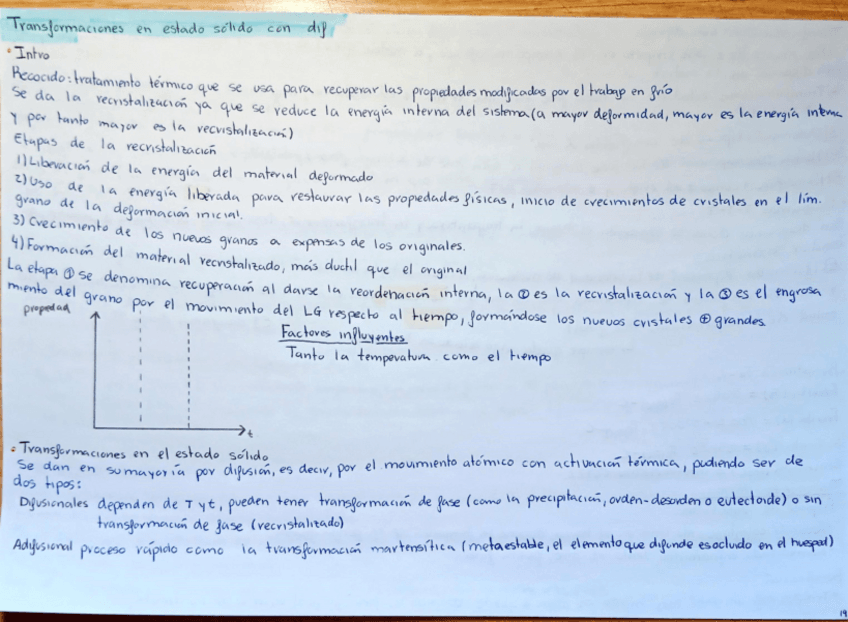 Transformaciones en estado sólido con dif
• Intro
Recocido: tratamiento térmico que se usa para recuperar las propiedades modificadas por el trabajo en frío
Se da la recristalización ya que se reduce la energía interna del sistema (a mayor deformidad, mayor es la energía interna
y por tanto mayor es la recristalización)
Etapas de la recristalización
1) Liberación de la energía del material deformado
2) Uso de la energía liberada para restaurar las propiedades físicas, inicio de crecimientos de cristales en el lím.
grano de la deformación inicial.
3) Crecimiento de los nuevos granos a expensas de los originales.
4) Formación del material recristalizado, más ductil que el original
La etapa ① se denomina recuperación al darse la reordenación interna, la ② es la recristalización y la ③ es el engrosa
miento del grano por el movimiento del LG respecto al tiempo, formándose los nuevos cristales ⊕ grandes.
propiedad
Factores influyentes
Tanto la temperatura como el tiempo
t
• Transformaciones en el estado sólido
Se dan en su mayoría por difusión, es decir, por el movimiento atómico con activación térmica, pudiendo ser de
dos tipos:
Difusionales dependen de T y t, pueden tener transformación de fase (como la precipitación, orden-desorden o eutectoide) o sin
transformación de fase (recristalizado)
Adifusional proceso rápido como la transformación martensítica (metaestable, el elemento que difunde es ocluido en el huesped)
19